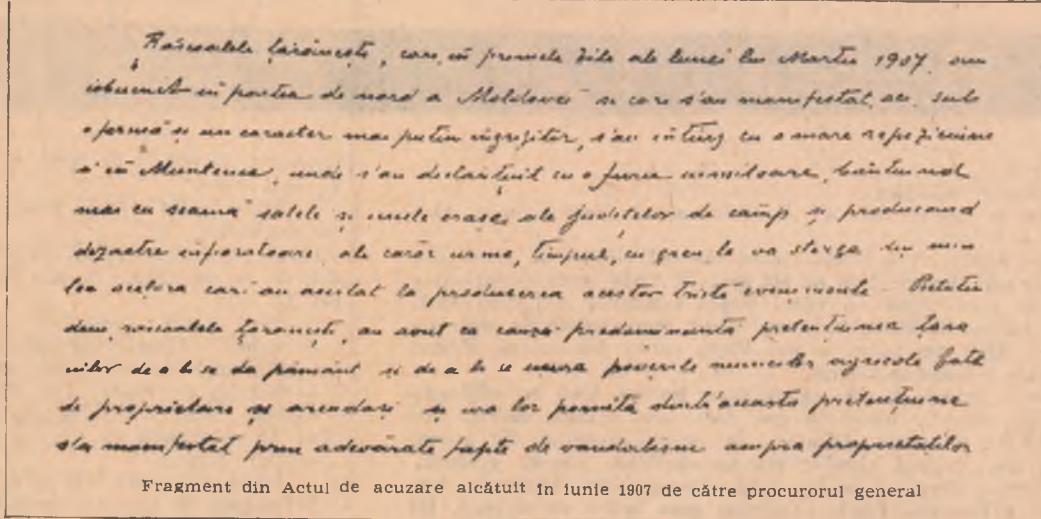 Răscoalele țărănești, care, în primele zile ale lunei lui Martie 1907, au
isbucnit in partea de nord a Moldovei și cari s'au manifestat, aci, sub
o formă și un caracter mai puțin îngrijitor, s'au întins cu o mare repeziciune
și în Muntenia, unde s'au deslănțuit cu o furie uimitoare, bântuind
mai cu seamă satele și unele orașe, ale județelor de câmp și producând
dezastre ale căror urme, timpul, cu greu le va șterge din
acelora cari au asistat la producerea acestor triste evenimente.
răscoalele țărănești, au avut ca cauză predominantă pretențiunea țăra
nilor de a li se da pământ și de a li se ușura poverile muncilor agricole față
de proprietari și arendași și ura lor pornită dintr'aceasta pretențiune
s'a manifestat prin adevărate fapte de vandalism asupra proprietăților
Fragment din Actul de acuzare alcătuit în iunie 1907 de către procurorul general